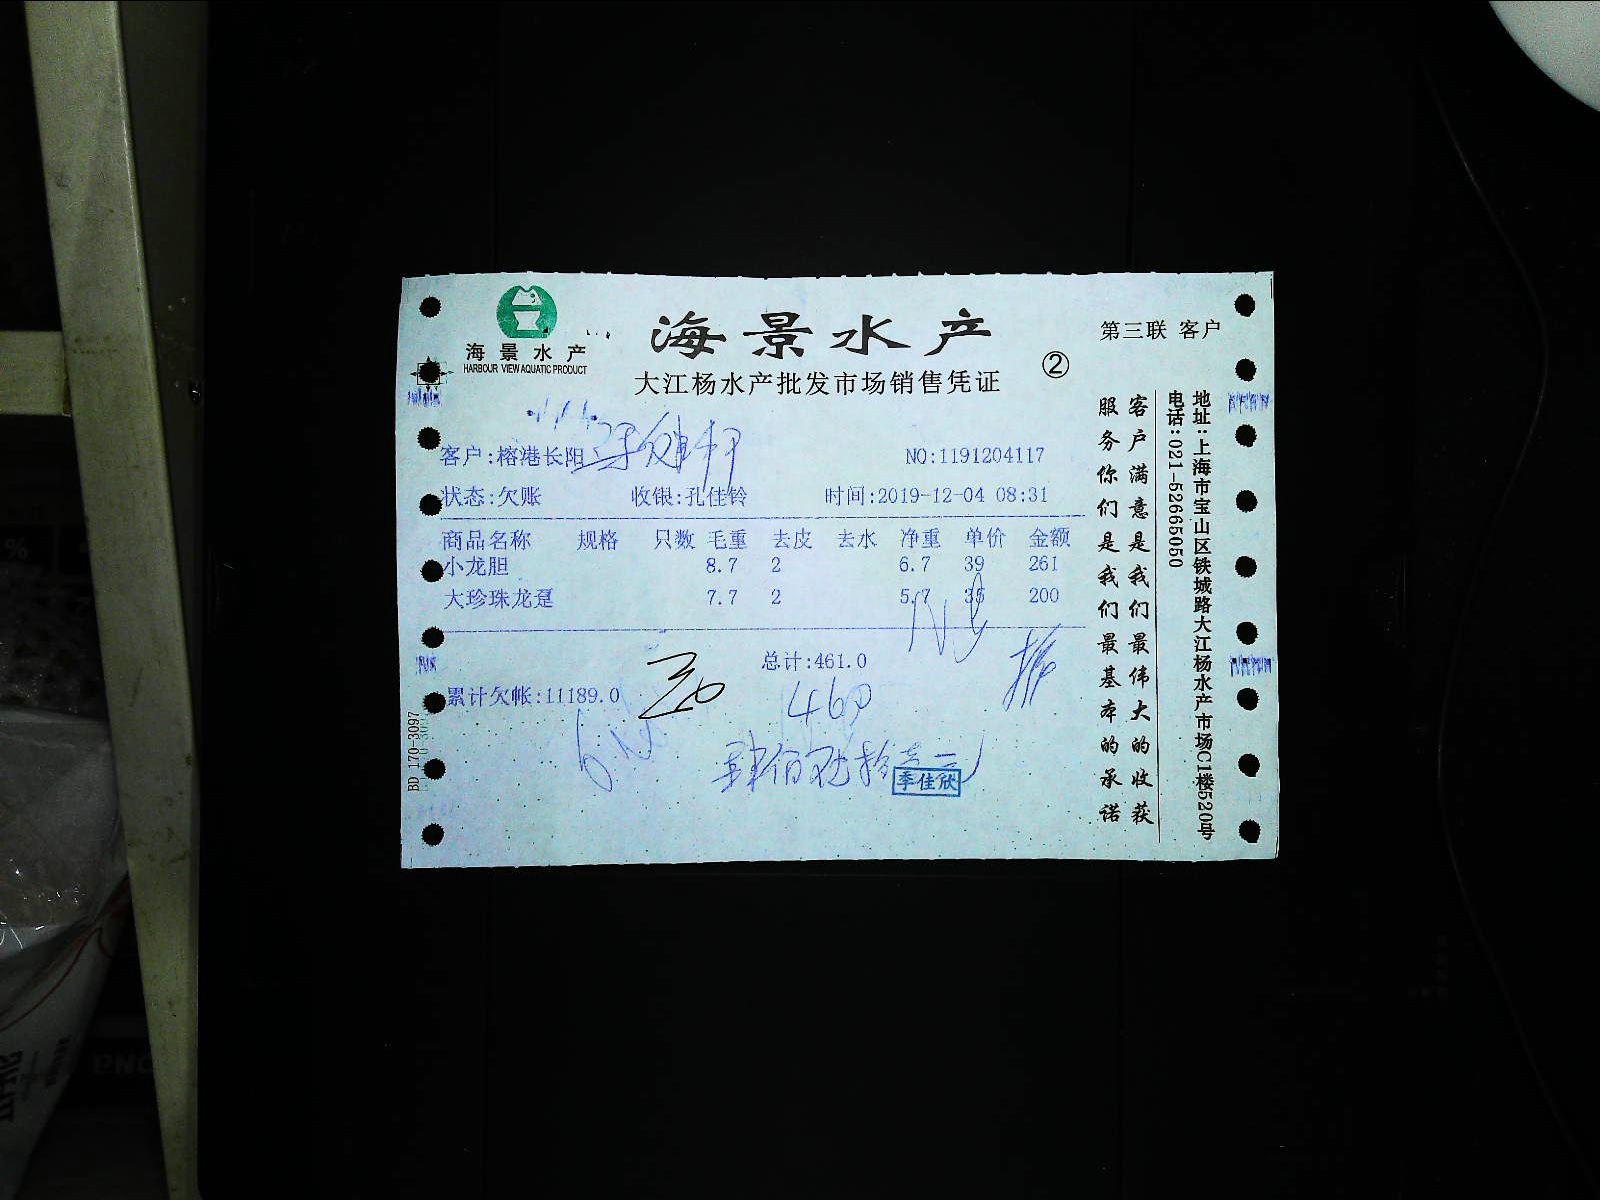 海景水产
HARBOUR VIEW AQUATIC PRODUCT
海景水产
大江杨水产批发市场销售凭证
②
第三联 客户
客户:榕港长阳
NO:1191204117
状态:欠账 收银:孔佳铃 时间:2019-12-04 08:31
商品名称 规格 只数 毛重 去皮 去水 净重 单价 金额
小龙胆 8.7 2 6.7 39 261
大珍珠龙趸 7.7 2 5.7 35 200
总计:461.0
累计欠帐:11189.0
460
季佳欣
BD 170-3097
客户满意是我们最伟大的收获
服务你们是我们最基本的承诺
地址:上海市宝山区铁城路大江杨水产市场C1楼520号
电话:021-52665050